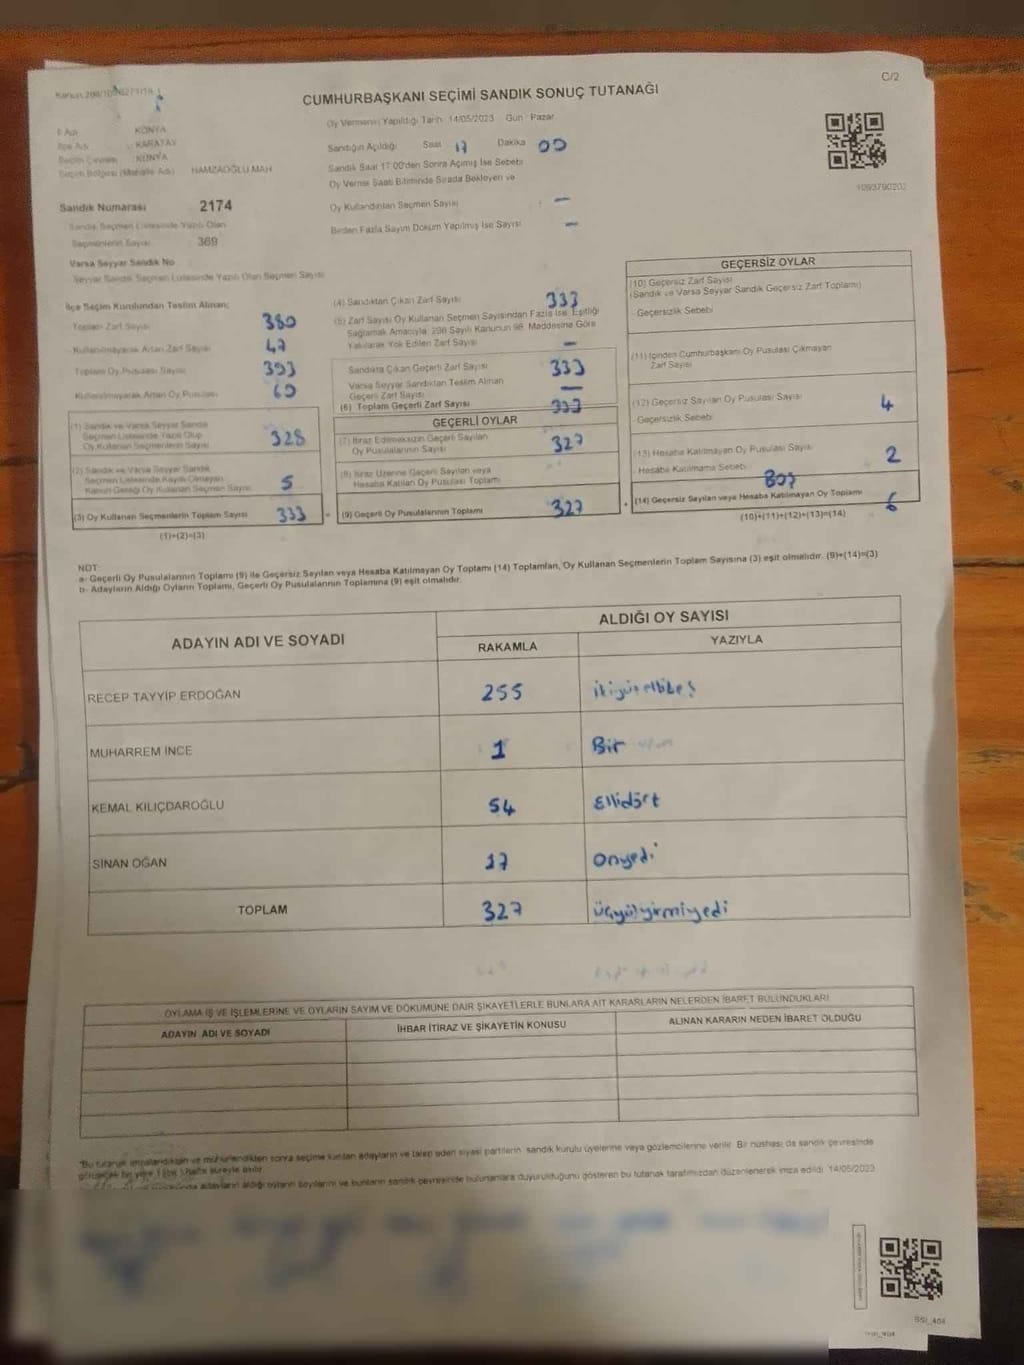 C/2
CUMHURBAŞKANI SEÇİMİ SANDIK SONUÇ TUTANAĞI
Oy Vermenin Yapıldığı Tarih 14/05/2023 Gün Pazar
İl Adı KONYA
İlçe Adı KARATAY
Seçim Çevresi KONYA
Seçim Bölgesi (Mahalle Adı) HAMZAOĞLU MAH
Sandığın Açıldığı Saat 17 Dakika 00
Sandık Saat 17:00'den Sonra Açılmış İse Sebebi
Oy Verme Saati Bitiminde Sırada Bekleyen ve
Oy Kullandırılan Seçmen Sayısı : —
Birden Fazla Sayım Döküm Yapılmış İse Sayısı —
1093790202
Sandık Numarası 2174
Sandık Seçmen Listesinde Yazılı Olan
Seçmenlerin Sayısı 369
Varsa Seyyar Sandık No
Seyyar Sandık Seçmen Listesinde Yazılı Olan Seçmen Sayısı
İlçe Seçim Kurulundan Teslim Alınan;
Toplam Zarf Sayısı 380
Kullanılmayarak Artan Zarf Sayısı 47
Toplam Oy Pusulası Sayısı 393
Kullanılmayarak Artan Oy Pusulası 60
(1) Sandık ve Varsa Seyyar Sandık
Seçmen Listesinde Yazılı Olup
Oy Kullanan Seçmenlerin Sayısı 328
(2) Sandık ve Varsa Seyyar Sandık
Seçmen Listesinde Kayıtlı Olmayan
Kanun Gereği Oy Kullanan Seçmen Sayısı 5
(3) Oy Kullanan Seçmenlerin Toplam Sayısı 333
(1)+(2)=(3)
(4) Sandıktan Çıkan Zarf Sayısı 333
(5) Zarf Sayısı Oy Kullanan Seçmen Sayısından Fazla İse, Eşitliği
Sağlamak Amacıyla, 298 Sayılı Kanunun 98. Maddesine Göre
Yakılarak Yok Edilen Zarf Sayısı —
Sandıkta Çıkan Geçerli Zarf Sayısı 333
Varsa Seyyar Sandıktan Teslim Alınan
Geçerli Zarf Sayısı —
(6) Toplam Geçerli Zarf Sayısı 333
GEÇERLİ OYLAR
(7) İtiraz Edilmeksizin Geçerli Sayılan
Oy Pusulalarının Sayısı 327
(8) İtiraz Üzerine Geçerli Sayılan veya
Hesaba Katılan Oy Pusulası Toplamı
(9) Geçerli Oy Pusulalarının Toplamı 327
GEÇERSİZ OYLAR
(10) Geçersiz Zarf Sayısı
(Sandık ve Varsa Seyyar Sandık Geçersiz Zarf Toplamı)
Geçersizlik Sebebi
(11) İçinden Cumhurbaşkanı Oy Pusulası Çıkmayan
Zarf Sayısı
(12) Geçersiz Sayılan Oy Pusulası Sayısı 4
Geçersizlik Sebebi
(13) Hesaba Katılmayan Oy Pusulası Sayısı 2
Hesaba Katılmama Sebebi
(14) Geçersiz Sayılan veya Hesaba Katılmayan Oy Toplamı 6
(10)+(11)+(12)+(13)=(14)
NOT:
a- Geçerli Oy Pusulalarının Toplamı (9) ile Geçersiz Sayılan veya Hesaba Katılmayan Oy Toplamı (14) Toplamları, Oy Kullanan Seçmenlerin Toplam Sayısına (3) eşit olmalıdır. (9)+(14)=(3)
b- Adayların Aldığı Oyların Toplamı, Geçerli Oy Pusulalarının Toplamına (9) eşit olmalıdır.
ADAYIN ADI VE SOYADI ALDIĞI OY SAYISI
RAKAMLA YAZIYLA
RECEP TAYYİP ERDOĞAN 255 ikiyüzellibeş
MUHARREM İNCE 1 Bir
KEMAL KILIÇDAROĞLU 54 Ellidört
SİNAN OĞAN 17 Onyedi
TOPLAM 327 üçyüzyirmiyedi
OYLAMA İŞ VE İŞLEMLERİNE VE OYLARIN SAYIM VE DÖKÜMÜNE DAİR ŞİKAYETLERLE BUNLARA AİT KARARLARIN NELERDEN İBARET BULUNDUKLARI
ADAYIN ADI VE SOYADI İHBAR İTİRAZ VE ŞİKAYETİN KONUSU ALINAN KARARIN NEDEN İBARET OLDUĞU
"Bu tutanak imzalandıktan ve mühürlendikten sonra seçime katılan adayların ve talep eden siyasi partilerin sandık kurulu üyelerine veya gözlemcilerine verilir. Bir nüshası da sandık çevresinde
görülecek bir yere 1 (bir) hafta süreyle asılır.
adayların aldığı oyların sayılarını ve bunların sandık çevresinde bulunanlara duyurulduğunu gösteren bu tutanak tarafımızdan düzenlenerek imza edildi. 14/05/2023